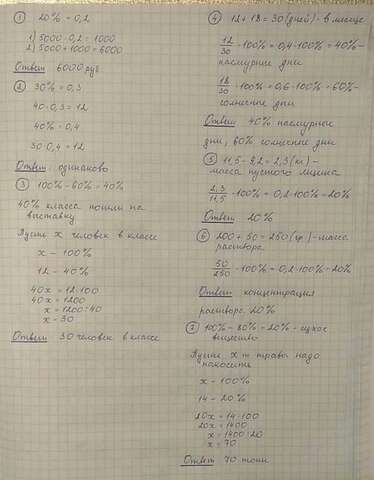 ① 20% = 0,2
1) 5000·0,2 = 1000
2) 5000+1000 = 6000
Ответ 6000 руб
② 30% = 0,3
40·0,3 = 12
40% = 0,4
30·0,4 = 12
Ответ: одинаково
③ 100% - 60% = 40%
40% класса пошли на
выставку
Пусть х человек в классе
х - 100%
12 - 40%
40х = 12·100
40х = 1200
х = 1200:40
х = 30
Ответ 30 человек в классе
④ 12 + 18 = 30 (дней) - в месяце
12/30 · 100% = 0,4·100% = 40% -
пасмурные дни
18/30 · 100% = 0,6·100% = 60% -
солнечные дни
Ответ 40% пасмурные
дни, 60% солнечные дни
⑤ 11,5 - 9,2 = 2,3 (кг) -
масса пустого ящика
2,3/11,5 · 100% = 0,2·100% = 20%
Ответ 20%
⑥ 200 + 50 = 250 (гр.) - масса
раствора
50/250 · 100% = 0,2·100% = 20%
Ответ концентрация
раствора 20%
⑦ 100% - 80% = 20% - сухое
вещество
Пусть х т травы надо
накосить
х - 100%
14 - 20%
20х = 14·100
20х = 1400
х = 1400:20
х = 70
Ответ 70 тонн